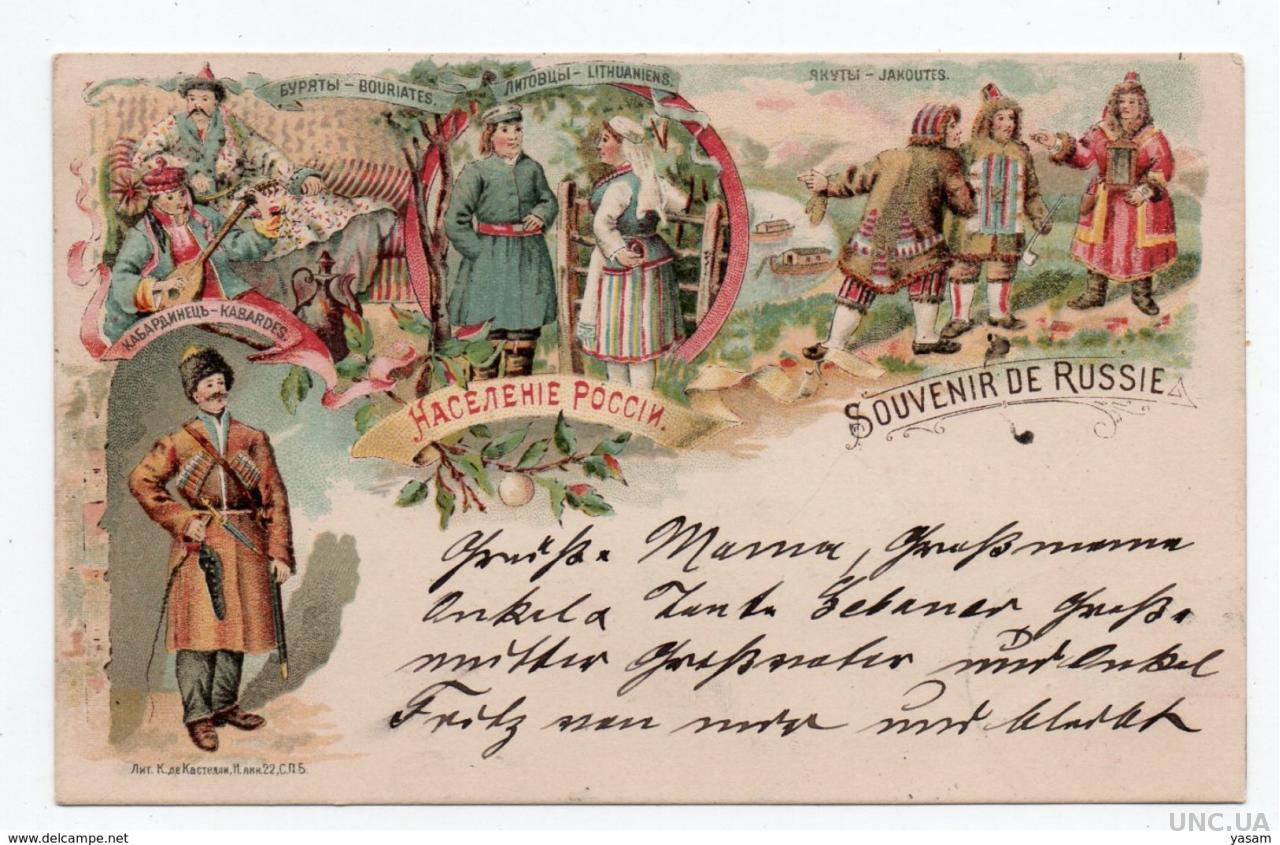 БУРЯТЫ – BOURIATES.
ЛИТОВЦЫ – LITHUANIENS.
ЯКУТЫ – JAKOUTES.
КАБАРДИНЕЦЪ – KABARDES.
НАСЕЛЕНІЕ РОССІИ.
SOUVENIR DE RUSSIE
Grüße Mama, Großmama
Onkel Tante Groß-
mutter Großvater und Onkel
Fritz von mir und bleibt
Лит. К. де Кастелли, 11 лин. 22, С.П.Б.
www.delcampe.net
UNC.UA
yasam